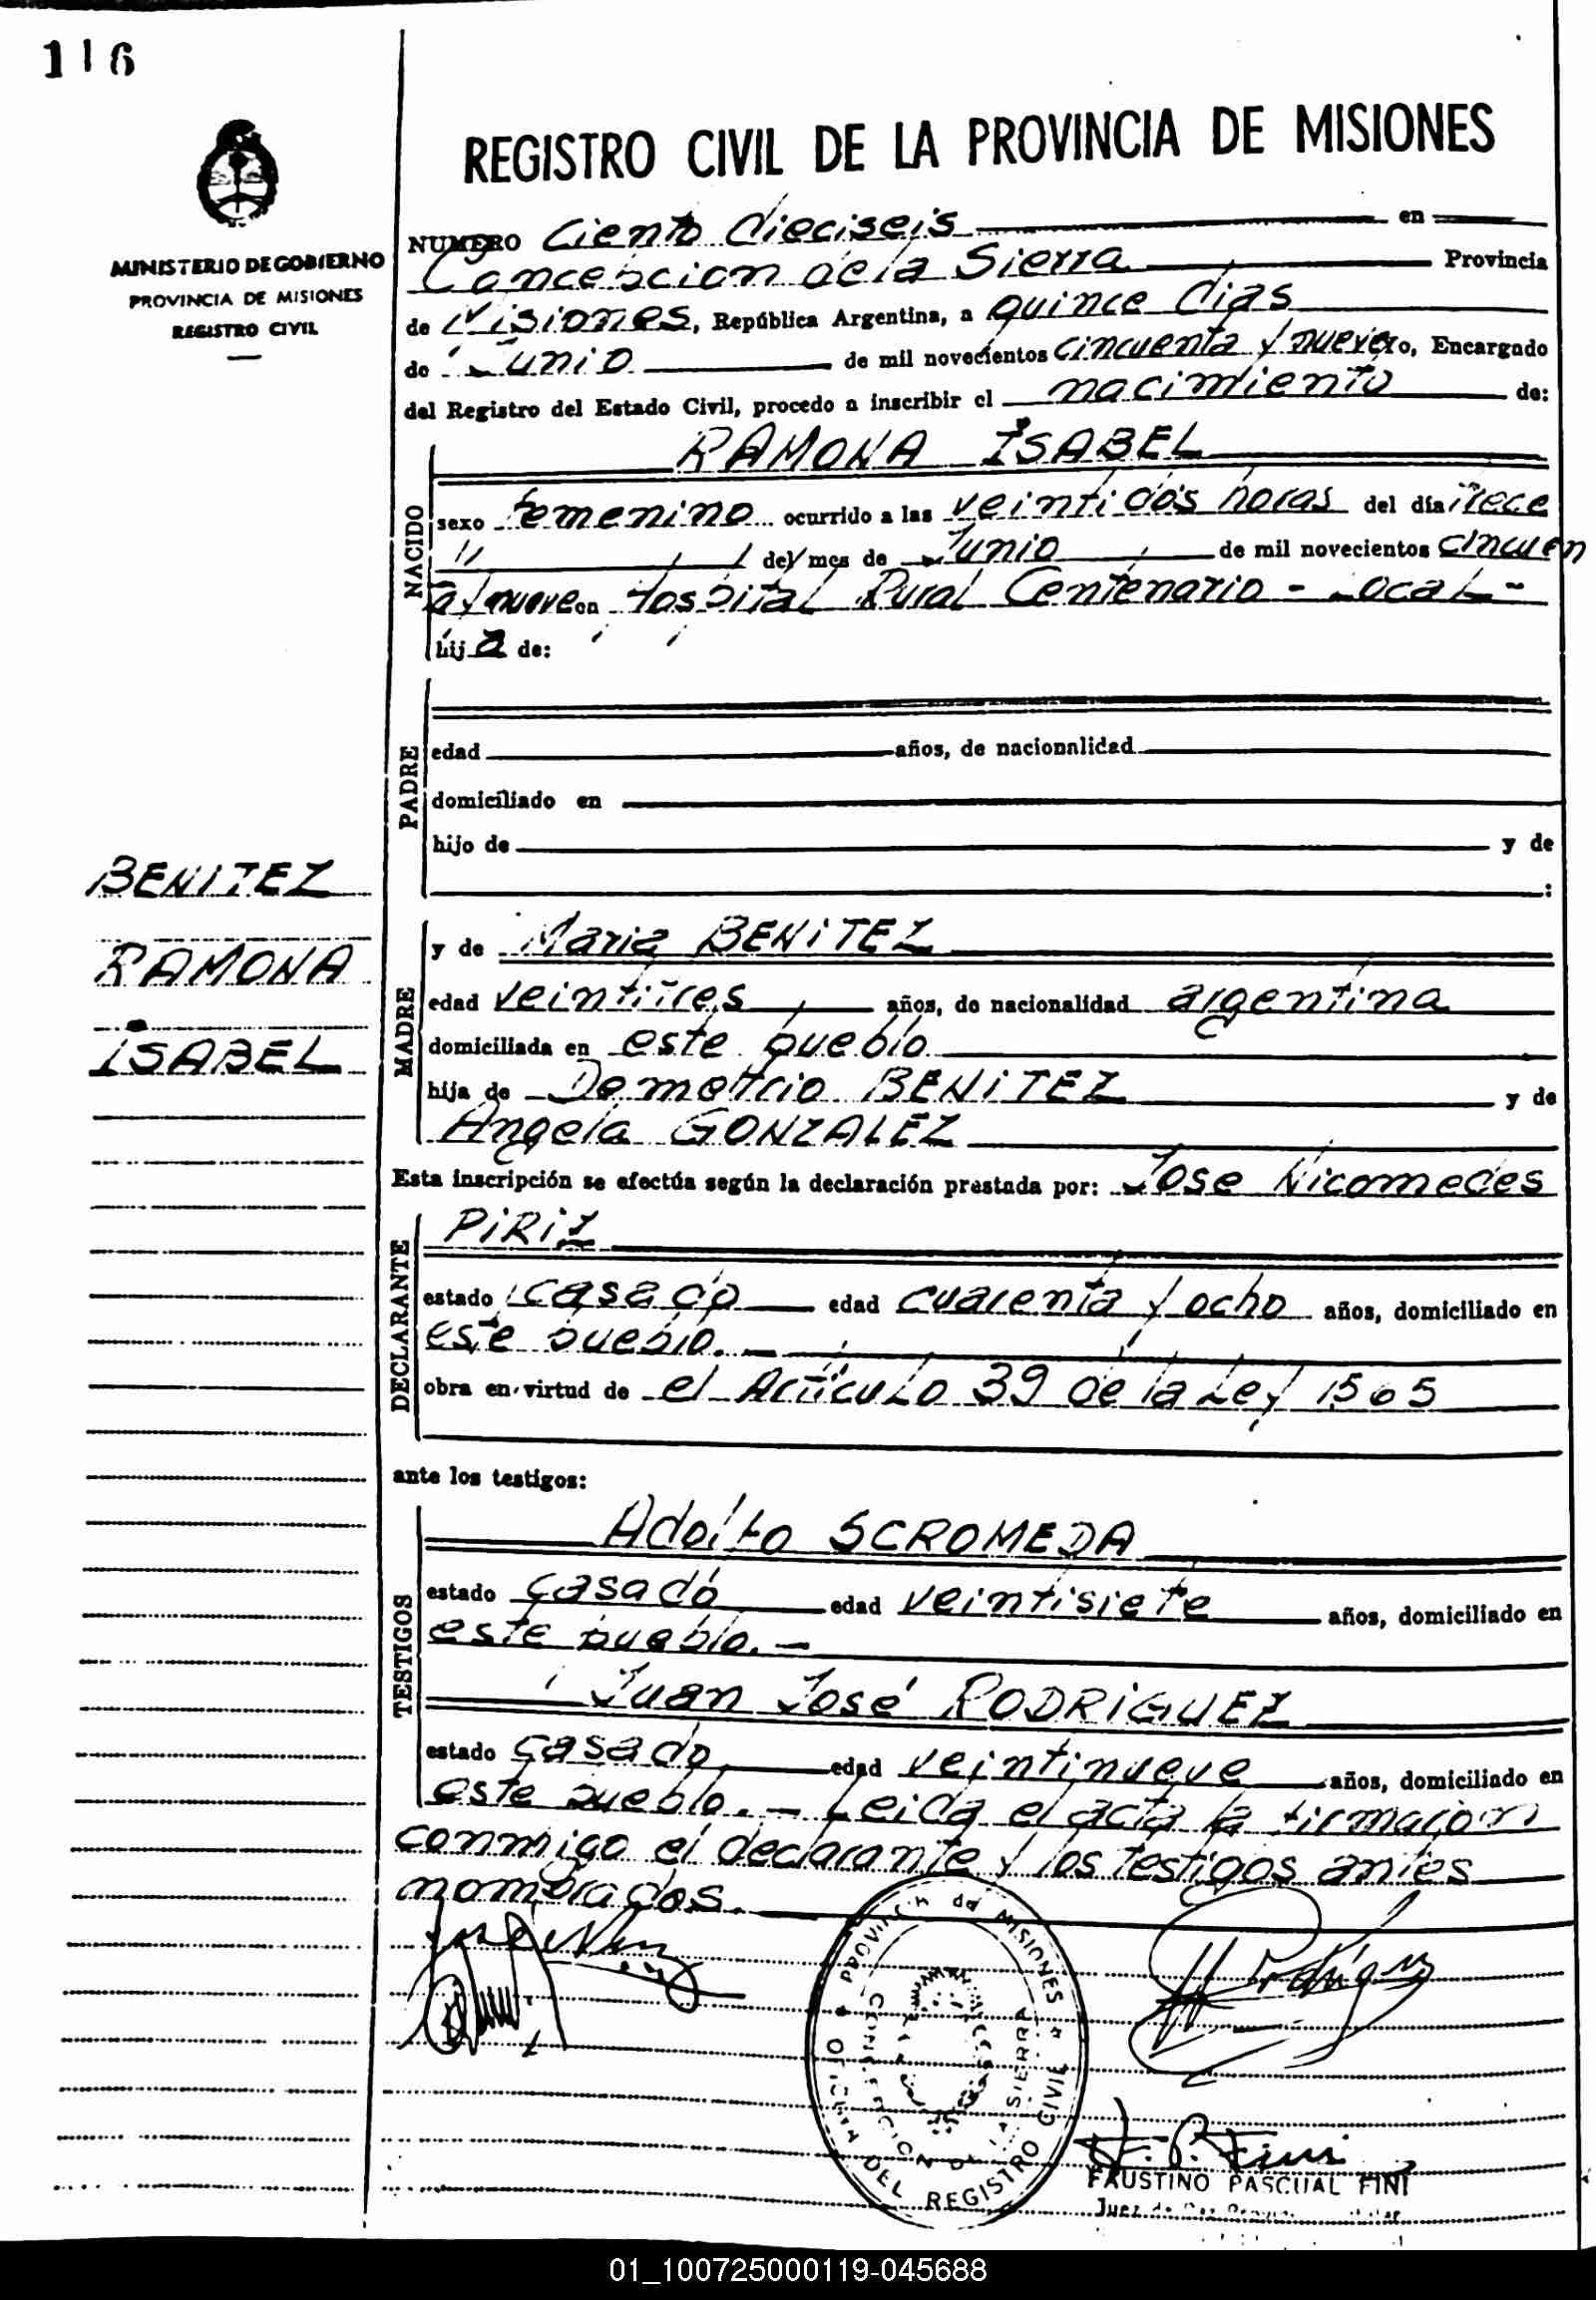 116
MINISTERIO DE GOBIERNO
PROVINCIA DE MISIONES
REGISTRO CIVIL
REGISTRO CIVIL DE LA PROVINCIA DE MISIONES
NUMERO Ciento dieciseis en
Concepcion de la Sierra Provincia
de Misiones, República Argentina, a quince dias
de Junio de mil novecientos cincuenta y nueve, Encargado
del Registro del Estado Civil, procedo a inscribir el nacimiento de:
NACIDO
RAMONA ISABEL
sexo femenino ocurrido a las veintidos horas del día trece
del mes de Junio de mil novecientos cincuen
ta y nueve en Hospital Rural Centenario - Local -
hija de:
PADRE
edad años, de nacionalidad
domiciliado en
hijo de y de
:
BENITEZ
RAMONA
ISABEL
MADRE
y de Maria BENITEZ
edad veintitres años, de nacionalidad argentina
domiciliada en este pueblo
hija de Demetrio BENITEZ y de
Angela GONZALEZ
Esta inscripción se efectúa según la declaración prestada por: Jose Nicomedes
DECLARANTE
PIRIZ
estado casado edad cuarenta y ocho años, domiciliado en
este pueblo. -
obra en virtud de el Articulo 39 de la Ley 1565
ante los testigos:
TESTIGOS
Adolfo SCROMEDA
estado casado edad veintisiete años, domiciliado en
este pueblo. -
Juan José RODRIGUEZ
estado casado edad veintinueve años, domiciliado en
este pueblo. - Leida el acta la firmaron
conmigo el declarante y los testigos antes
nombrados.
PROVINCIA de MISIONES
OFICINA DEL REGISTRO CIVIL
CONCEPCION DE LA SIERRA
F. P. Fini
FAUSTINO PASCUAL FINI
Juez de Paz
01_100725000119-045688